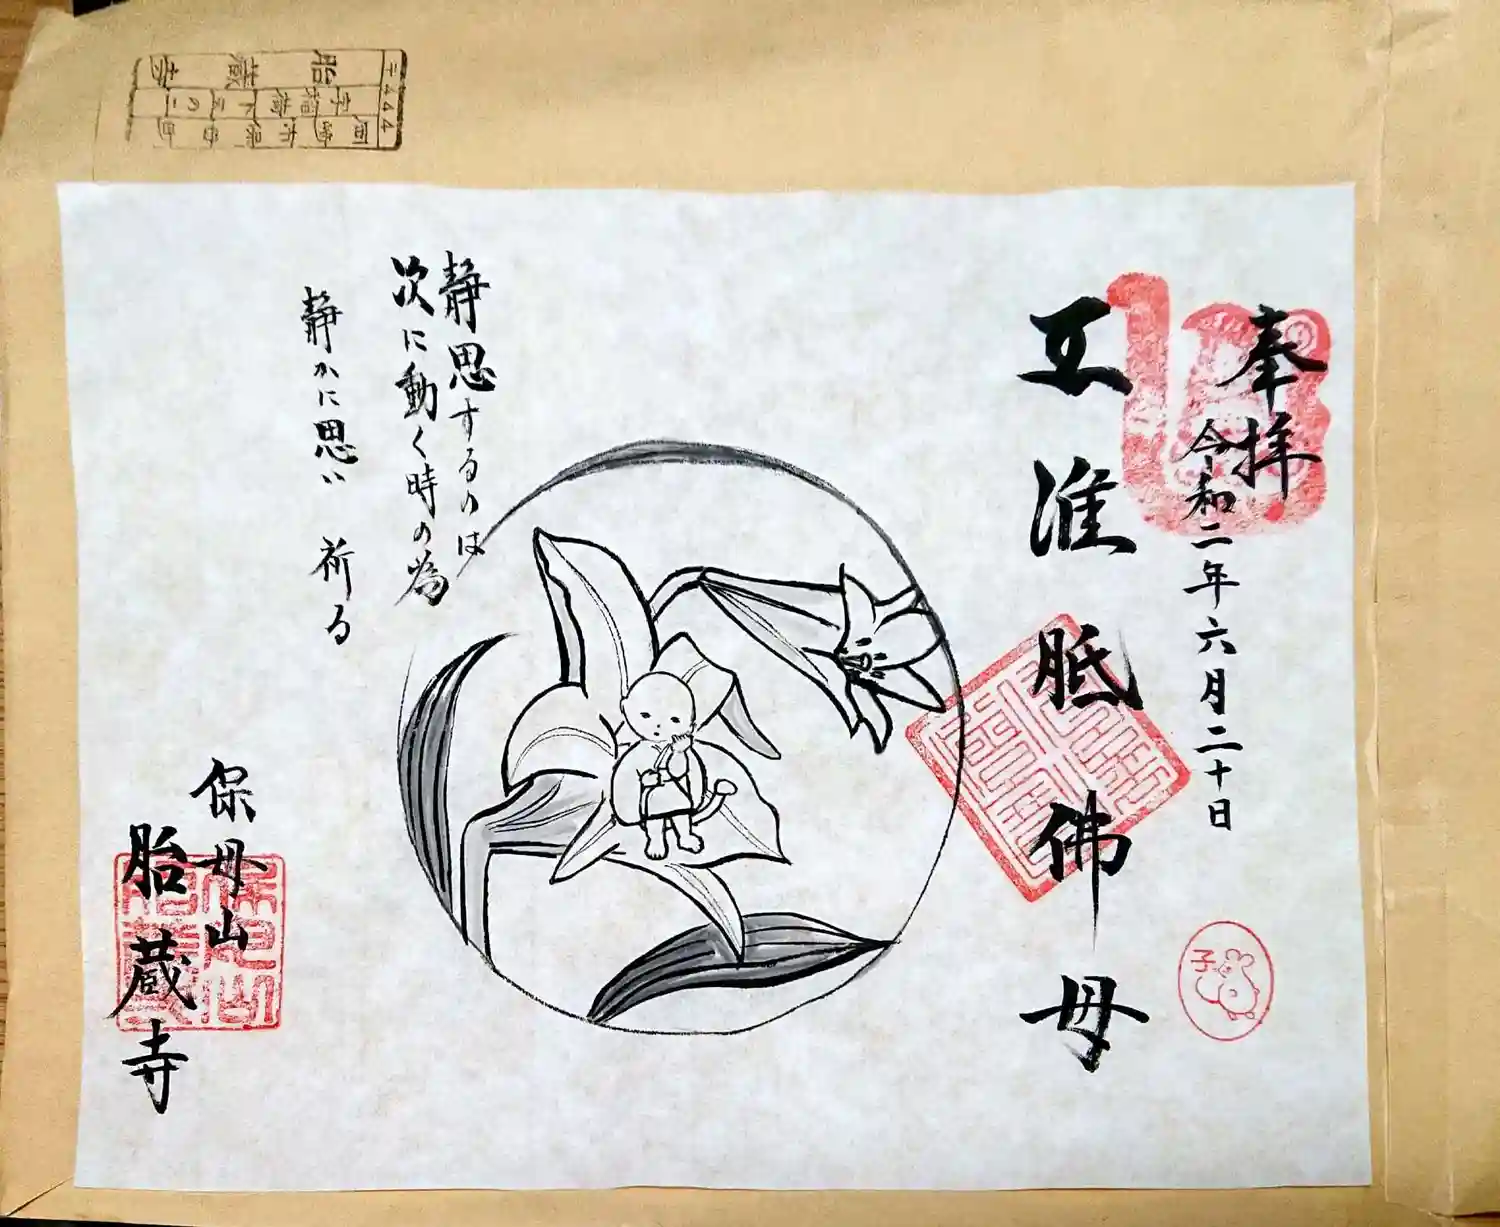 奉拝
令和二年六月二十日
准胝佛母
静思するのは
次に動く時の為
静かに思い 祈る
保母山
胎蔵寺
子
胎蔵寺
〒444